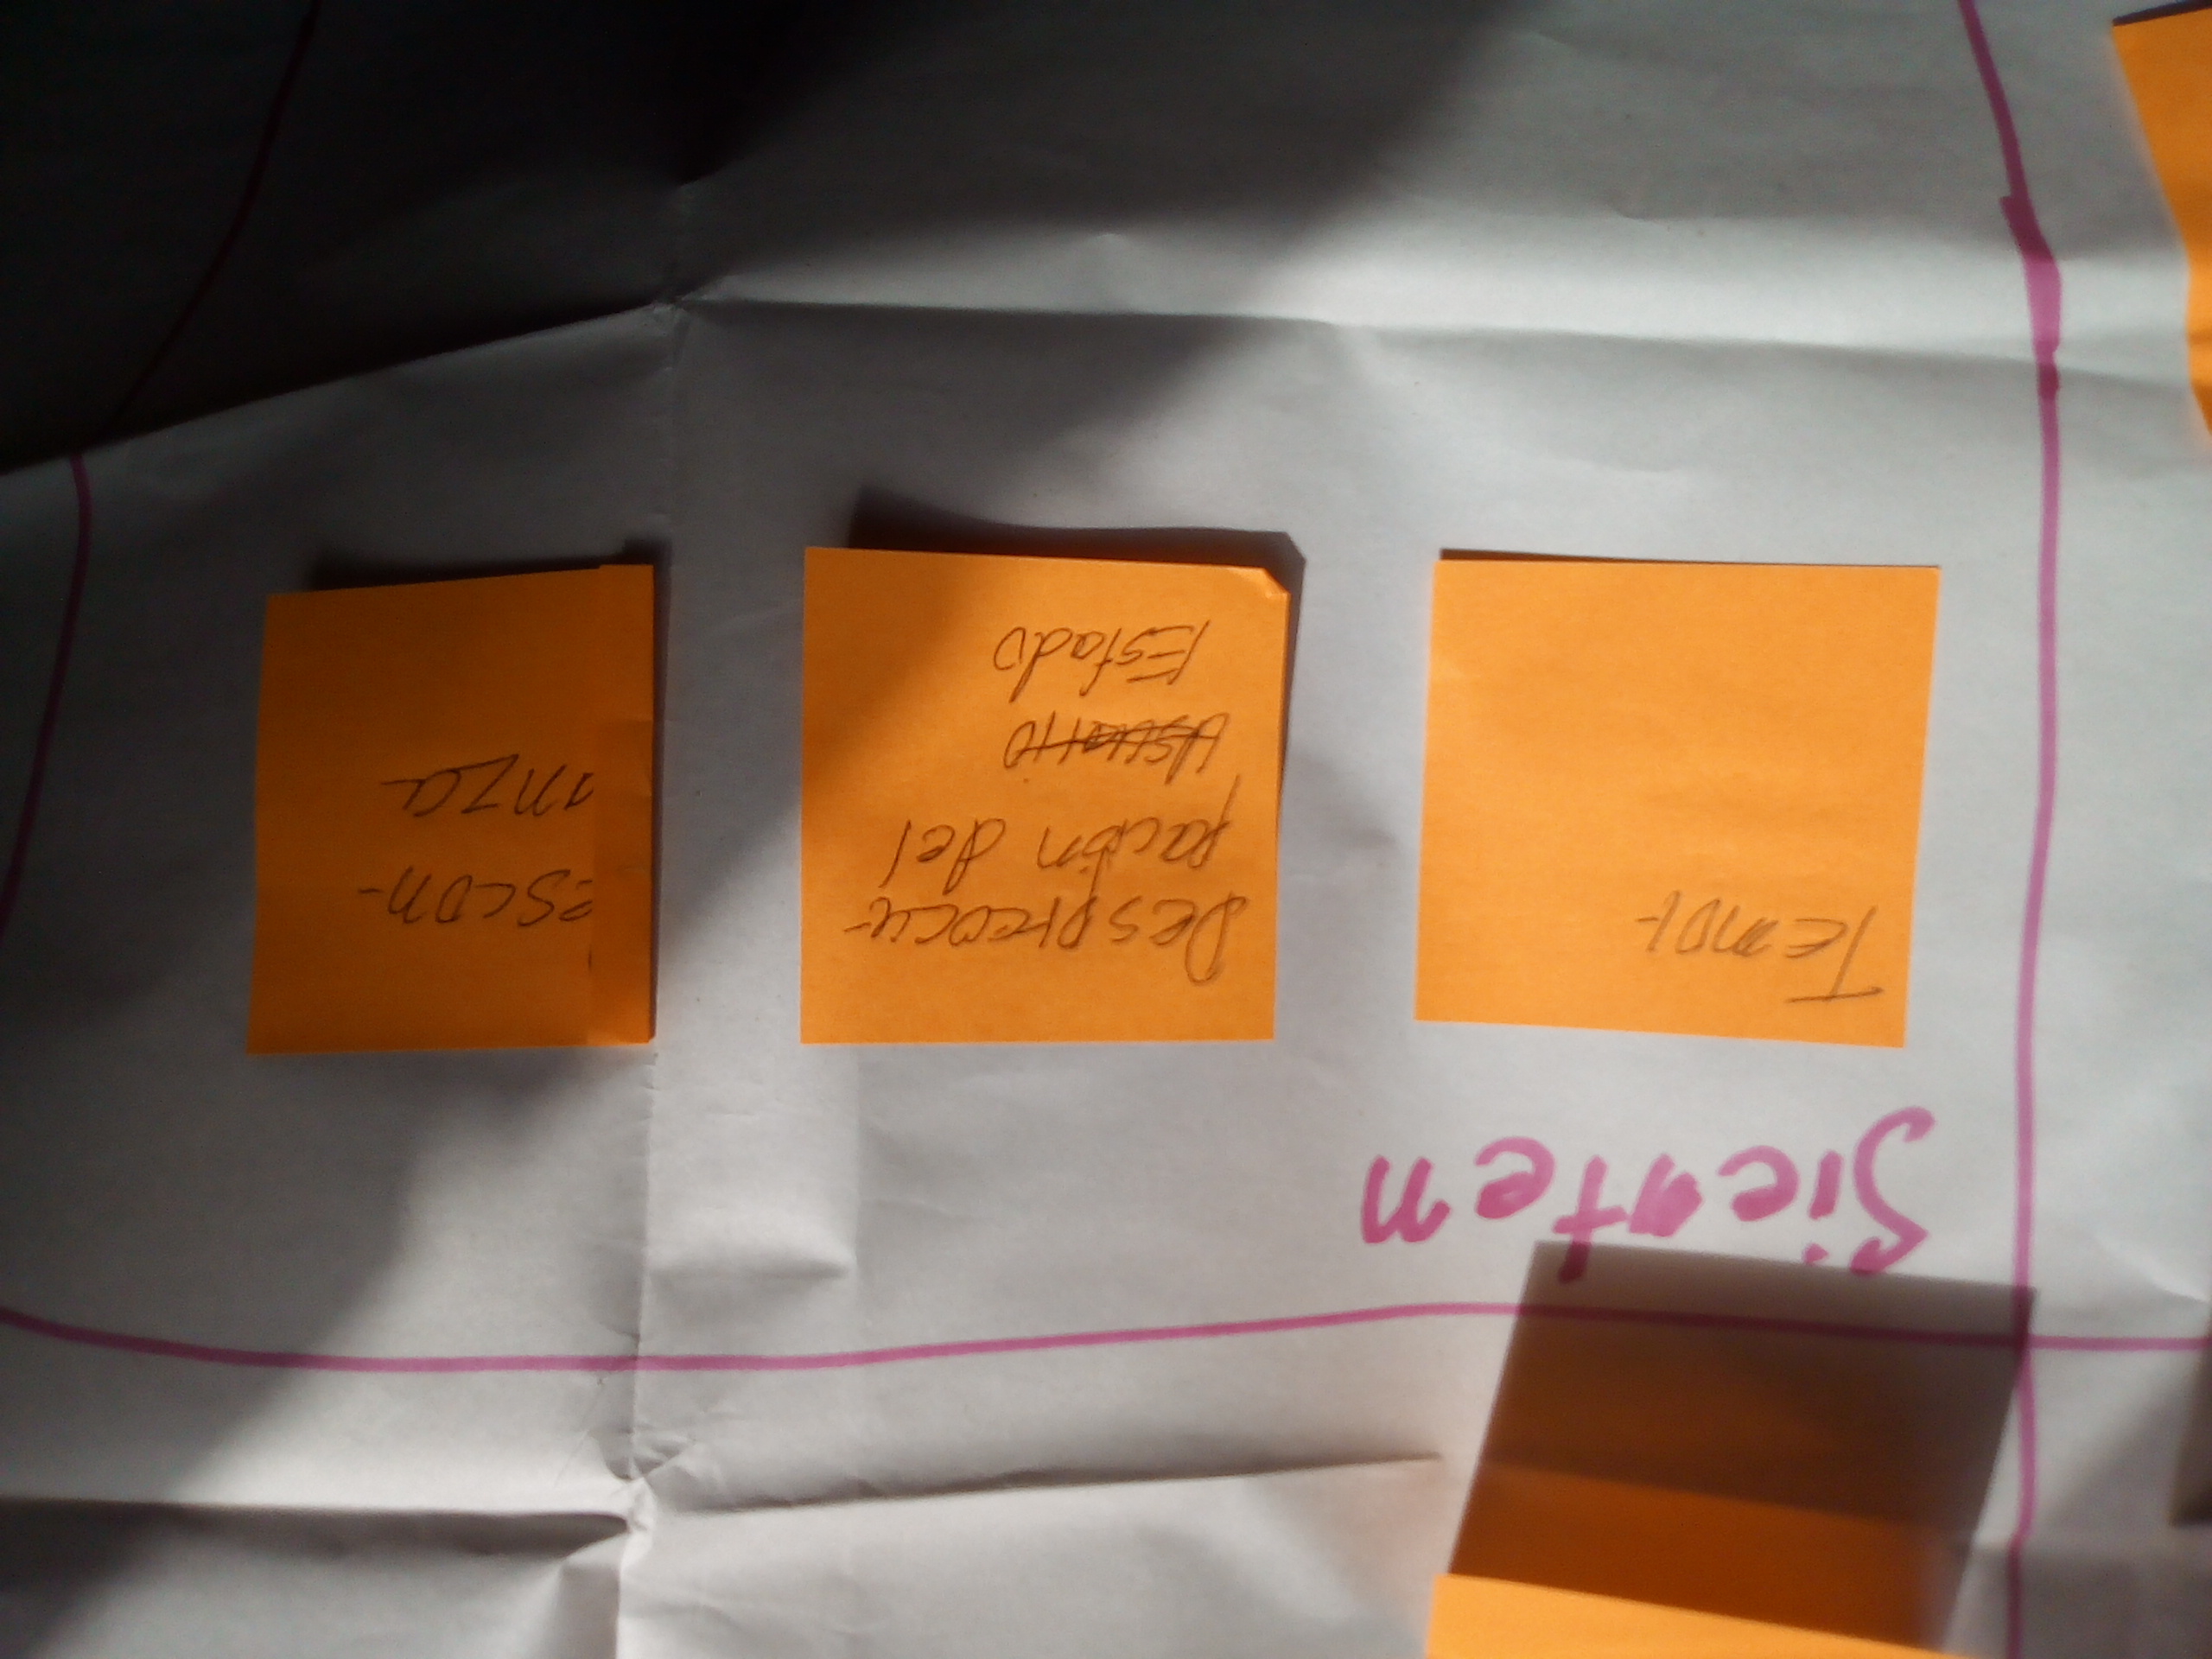 Sienten
Temor
Despreocu-
pación del
Usuario
Estado
escon-
anza